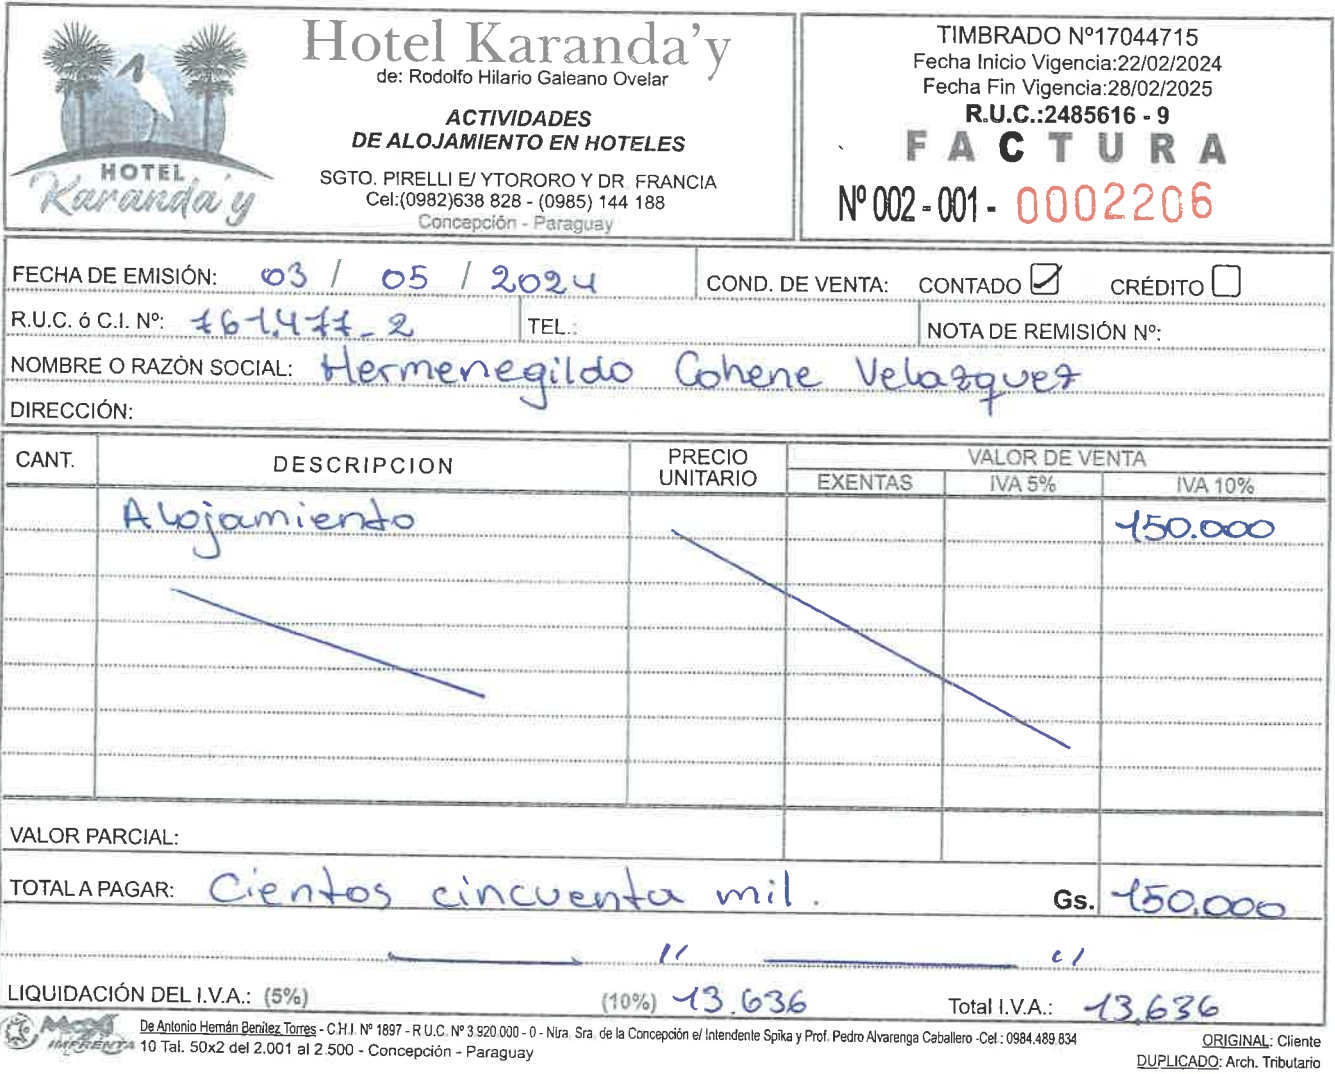 HOTEL
Karanda'y
Hotel Karanda'y
de: Rodolfo Hilario Galeano Ovelar
ACTIVIDADES
DE ALOJAMIENTO EN HOTELES
SGTO. PIRELLI E/ YTORORO Y DR. FRANCIA
Cel:(0982)638 828 - (0985) 144 188
Concepción - Paraguay
TIMBRADO Nº17044715
Fecha Inicio Vigencia:22/02/2024
Fecha Fin Vigencia:28/02/2025
R.U.C.:2485616 - 9
FACTURA
Nº 002 - 001 - 0002206
FECHA DE EMISIÓN: 03 / 05 / 2024 COND. DE VENTA: CONTADO CRÉDITO
R.U.C. ó C.I. Nº: 761.477-2 TEL.: NOTA DE REMISIÓN Nº:
NOMBRE O RAZÓN SOCIAL: Hermenegildo Cohene Velazquez
DIRECCIÓN:
CANT. DESCRIPCION PRECIO UNITARIO VALOR DE VENTA
EXENTAS IVA 5% IVA 10%
Alojamiento 150.000
VALOR PARCIAL:
TOTAL A PAGAR: Cientos cincuenta mil. Gs. 150.000
LIQUIDACIÓN DEL I.V.A.: (5%) (10%) 13.636 Total I.V.A.: 13.636
IMPRENTA De Antonio Hernán Benítez Torres - C.H.I. Nº 1897 - R.U.C. Nº 3.920.000 - 0 - Ntra. Sra. de la Concepción e/ Intendente Spika y Prof. Pedro Alvarenga Caballero -Cel.: 0984.489.834
10 Tal. 50x2 del 2.001 al 2.500 - Concepción - Paraguay
ORIGINAL: Cliente
DUPLICADO: Arch. Tributario